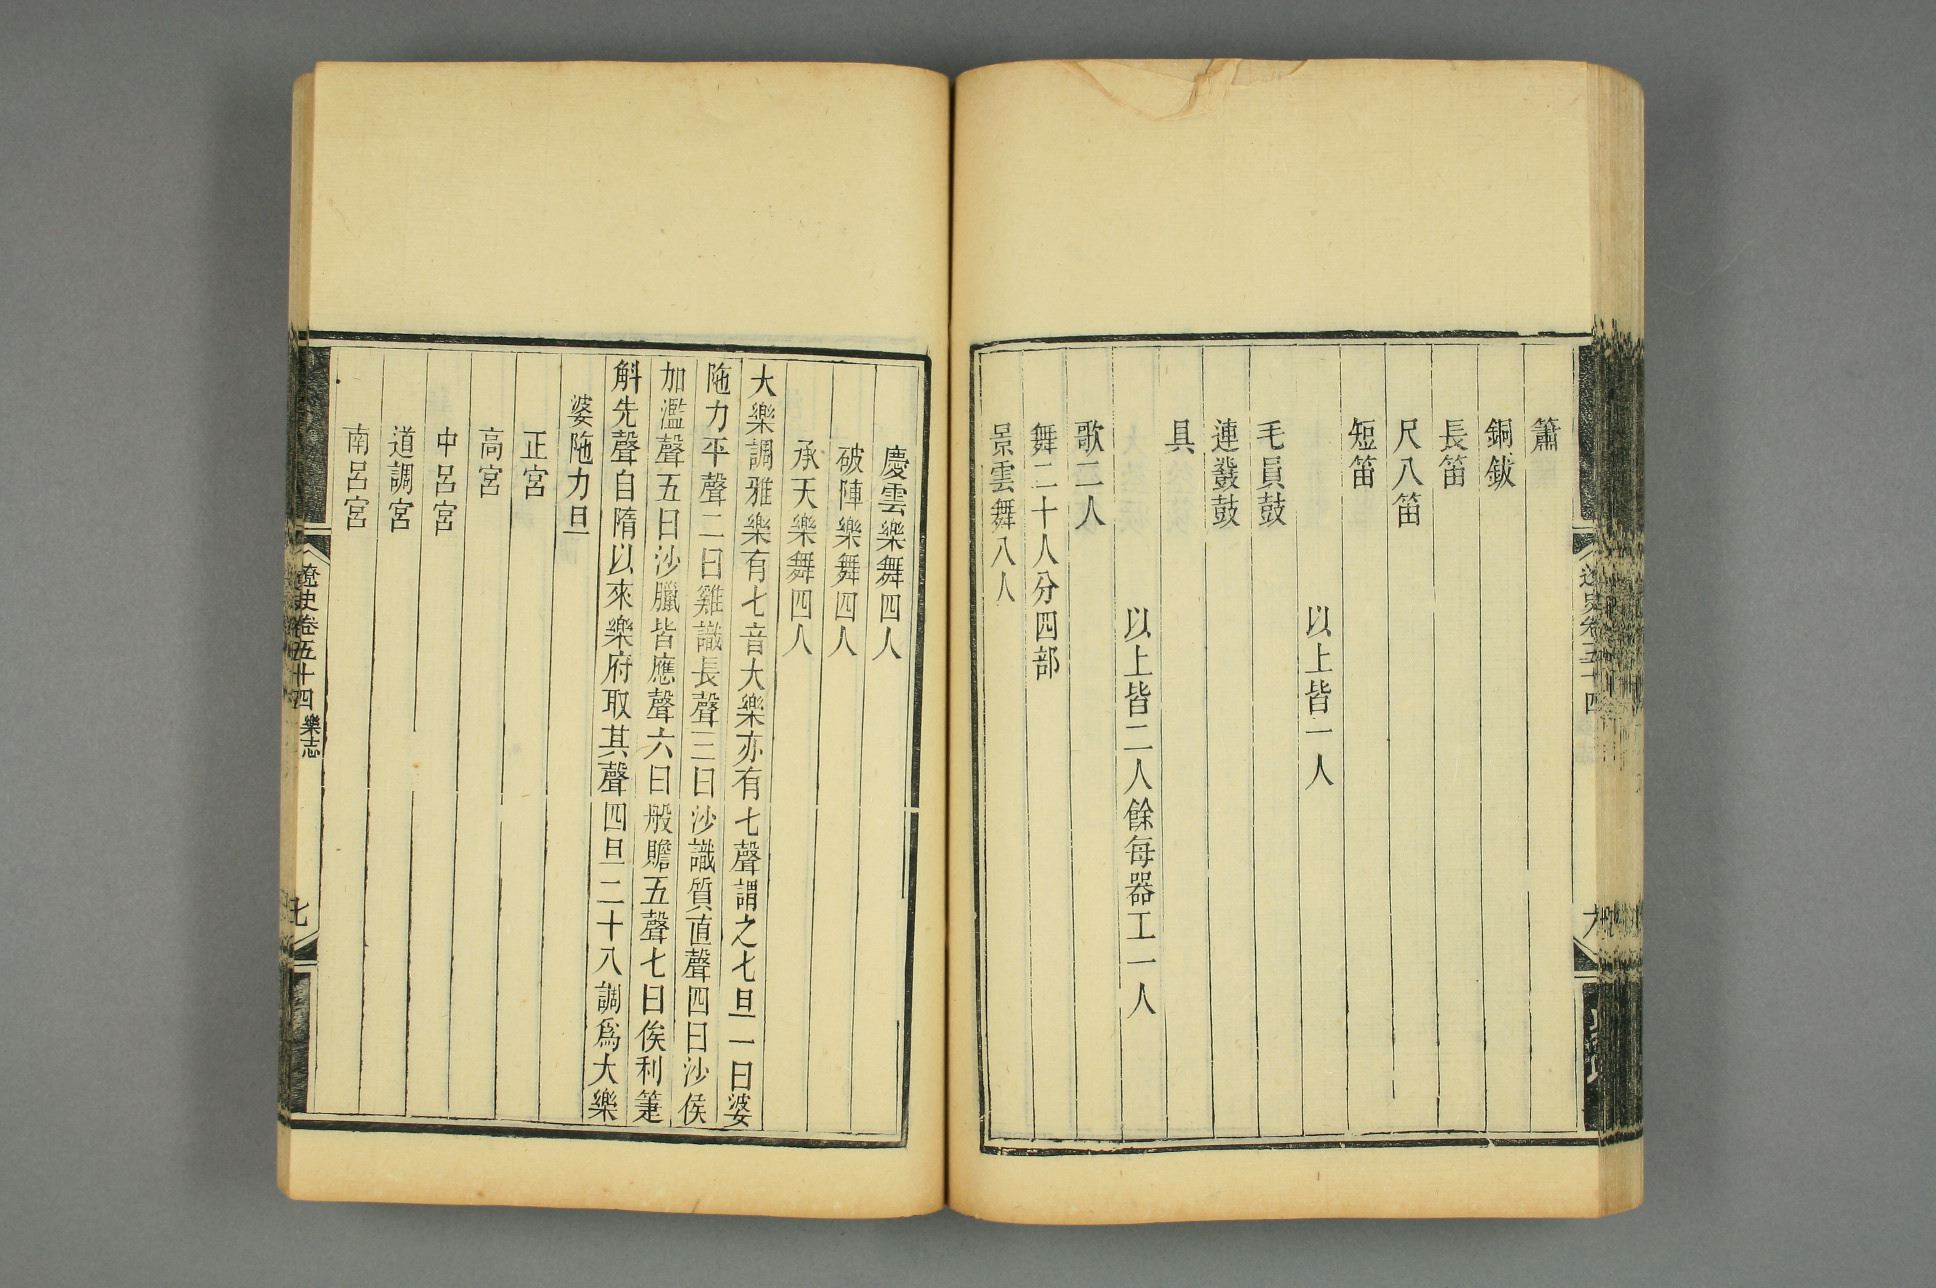 簫
銅鈸
長笛
尺八笛
短笛
以上皆一人
毛員鼓
連鼗鼓
具
以上皆二人餘每器工一人
歌二人
舞二十人分四部
景雲舞八人
慶雲樂舞四人
破陣樂舞四人
承天樂舞四人
大樂調雅樂有七音大樂亦有七聲謂之七旦一曰婆
陁力平聲二曰雞識長聲三曰沙識質直聲四曰沙侯
加濫聲五曰沙臘皆應聲六曰般贍五聲七曰俟利箑
斛先聲自隋以來樂府取其聲四旦二十八調爲大樂
婆陁力旦
正宮
高宮
中呂宮
道調宮
南呂宮
遼史卷五十四 樂志
七